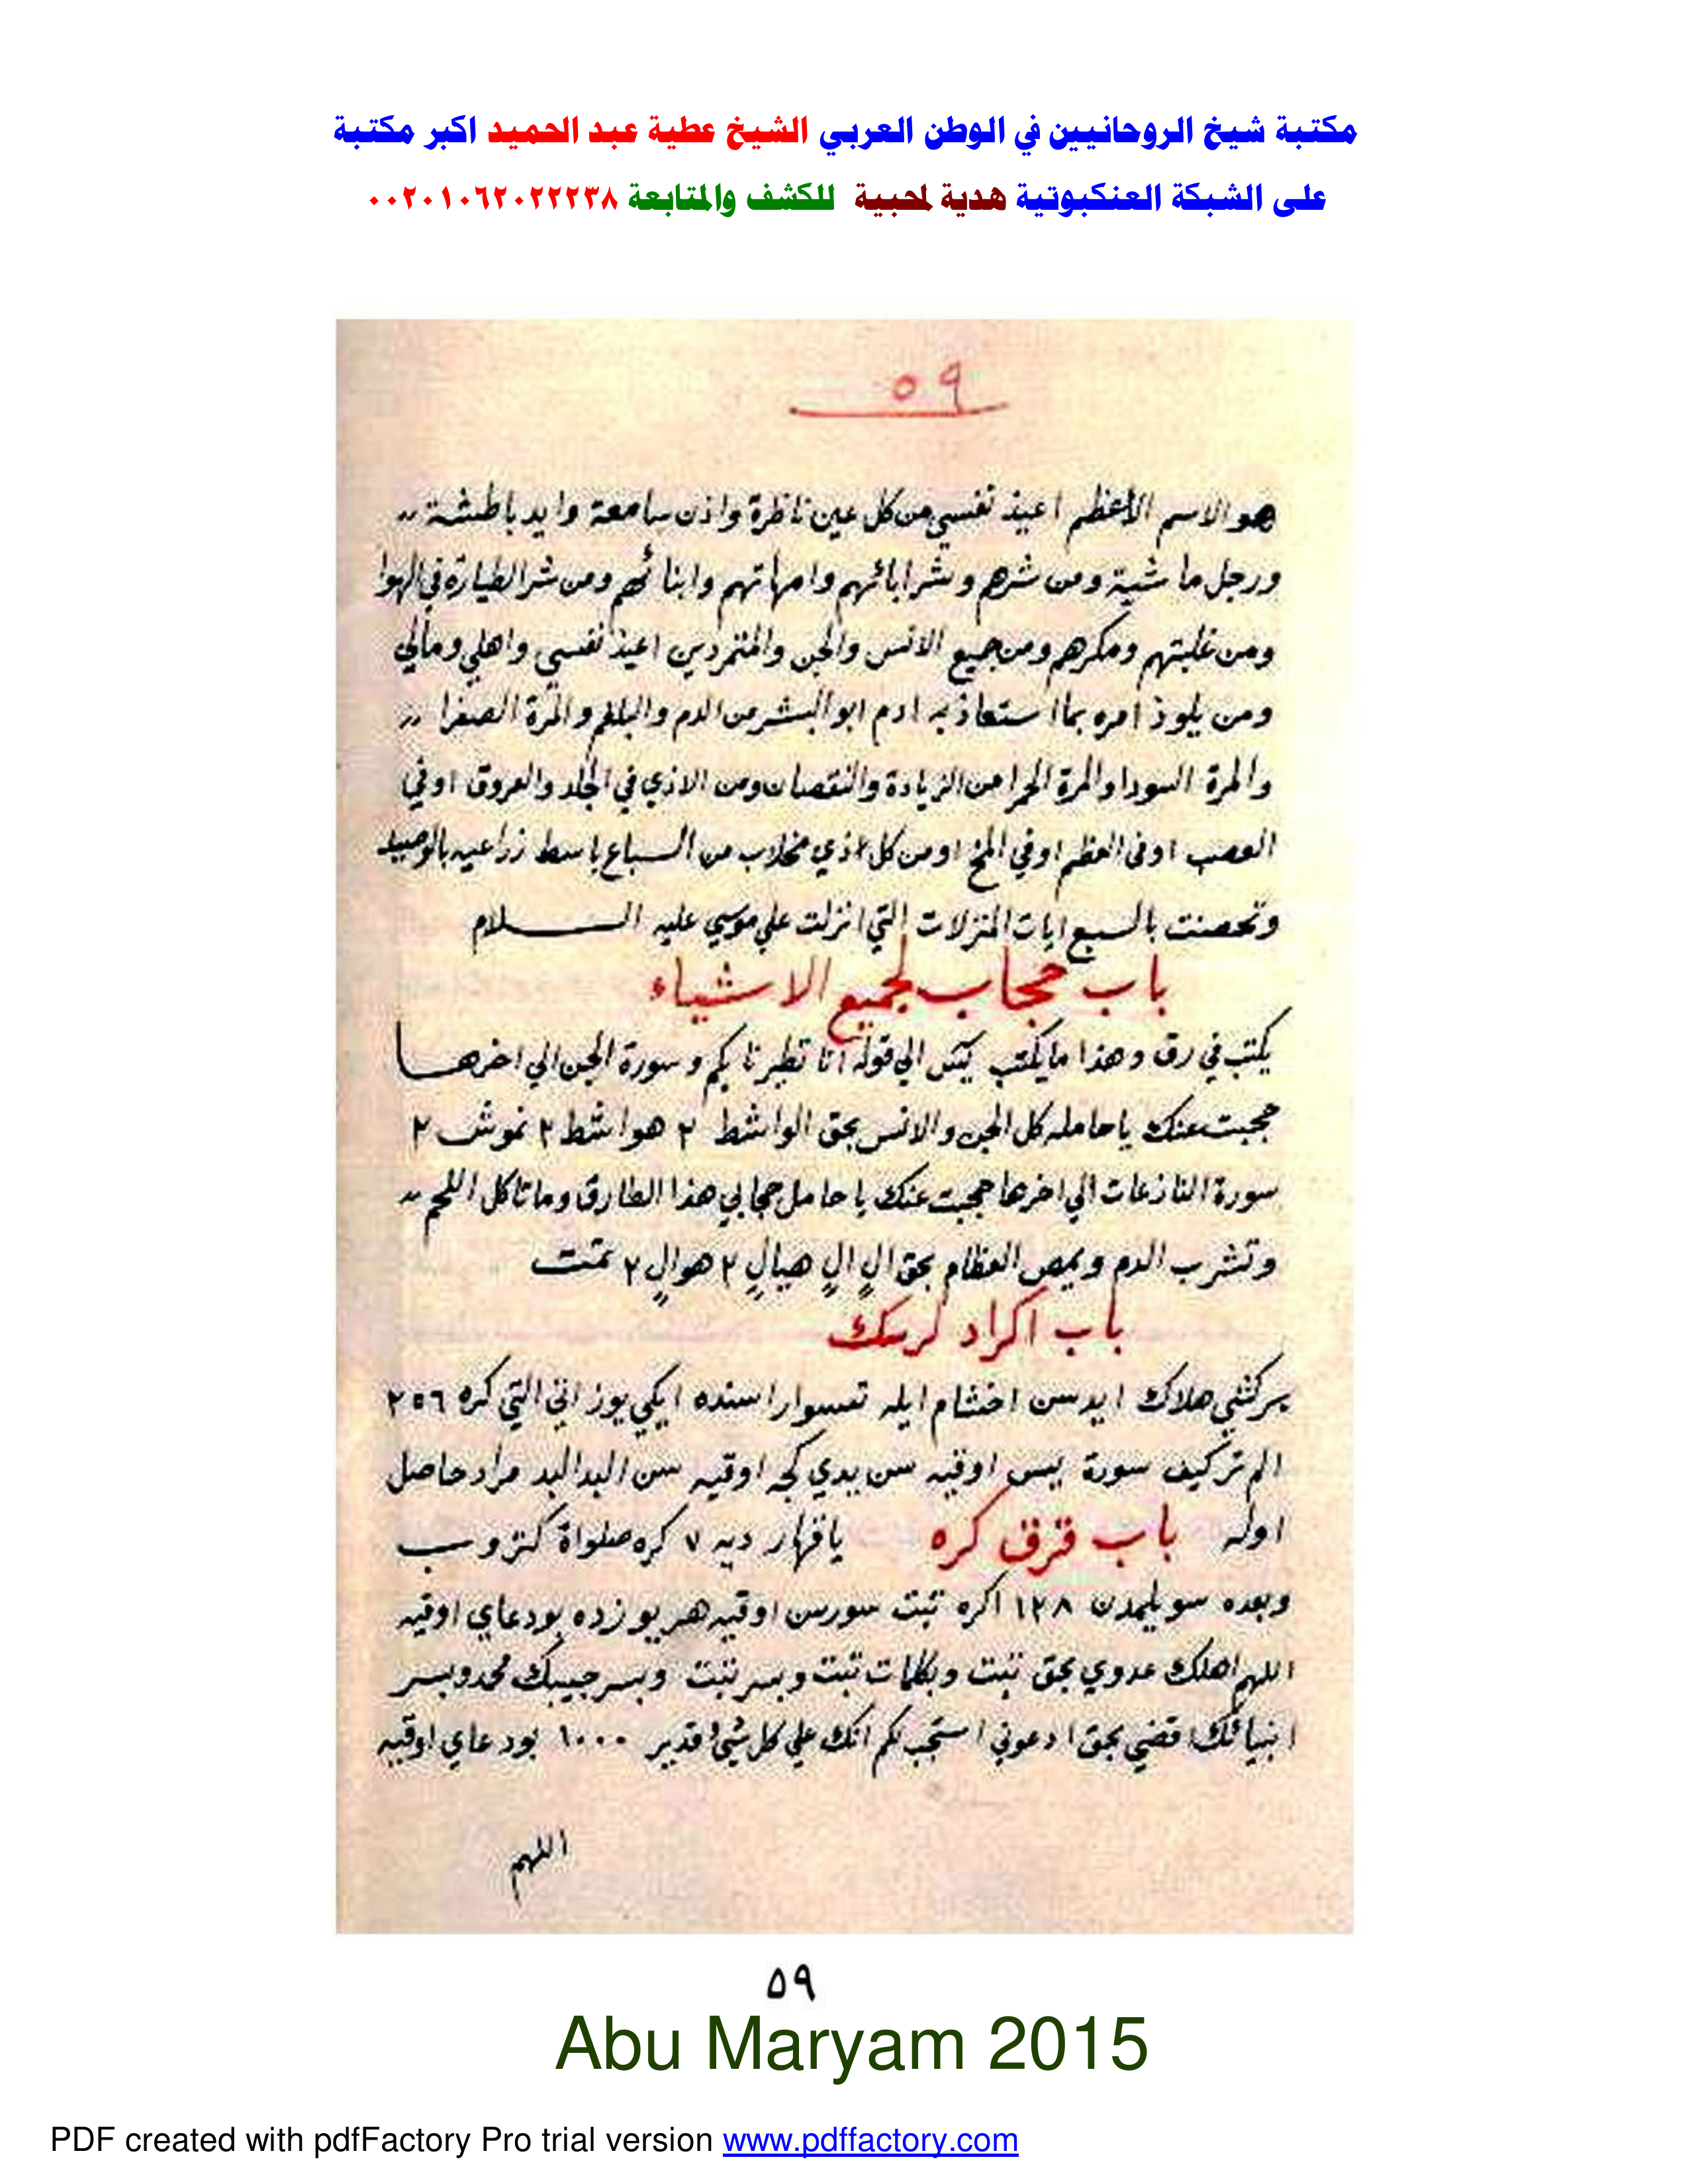 مكتبة شيخ الروحانيين في الوطن العربي الشيخ عطية عبد الحميد اكبر مكتبة
على الشبكة العنكبوتية هدية لمحبية للكشف والمتابعة ٠٠٢٠١٠٦٢٠٢٢٢٣٨
٥٩
هو الاسم الأعظم اعيذ نفسي من كل عين ناظرة واذن سامعة وايد باطشة
ورجل ماشية ومن شرهم وشر ابائهم وامهاتهم وابنائهم ومن شر الطيارة في الهوا
ومن غلبتهم ومكرهم ومن جميع الانس والجن والمتمردين اعيذ نفسي واهلي ومالي
ومن يلوذ امره بما استعاذ به ادم ابو البشر من الدم والبلغم والمرة الصفرا
والمرة السودا والمرة الحمرا من الزيادة والنقصان ومن الاذي في الجلد والعروق اوفي
العصب اوفي العظم اوفي المخ اومن كل اذي مخلاب من السباع باسط زراعيه بالوصيد
وتحصنت بالسبع ايات المنزلات التي انزلت علي موسي عليه السلام
باب حجاب لجميع الاشياء
يكتب في رق وهذا ما يكتب يس الي قوله انا تطيرنا بكم وسورة الجن الي اخرها
حجبت عنك يا حامله كل الجن والانس بحق الواشط ٢ هواشط ٢ نموش ٢
سورة النازعات الي اخرها حجبت عنك يا حامل حجابي هذا الطارق وما تاكل اللحم
وتشرب الدم ويمص العظام بحق الٍ الٍ هيالٍ ٢ هوالٍ ٢ تمت
باب اكراد
بركشي هلاك ايدسن اختشام ايله اراسنده ايكي يوز الي التي كره ٢٥٦
الم تركيف سورة يس اوقيه سن يدي كجه اوقيه سن البد البد مراد حاصل
اوله باب قرق كره ياقهار ديه ٧ كره صلواة
وبعده سويلمدن ١٢٨ اكره تبت سورسن اوقيه هر يوزده بودعاي اوقيه
اللهم اهلك عدوي بحق تبت وبكلمات تبت وبسر تبت وبسر حبيبك محمد وبسر
انبيائك اقضي بحق ادعوني استجب لكم انك علي كل شئ قدير ١٠٠٠ بودعاي اوقيه
اللهم
٥٩
Abu Maryam 2015
PDF created with pdfFactory Pro trial version www.pdffactory.com